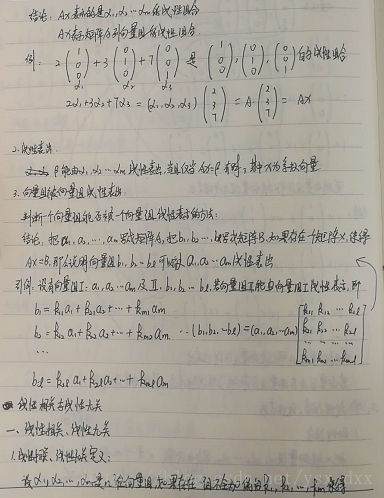 结论: Ax表示的是α₁,α₂…αm的线性组合
Ax表示矩阵A列向量组的线性组合.
例: 2(1 1 0 0)+3(0 1 0)+7(0 0 1) 是 (1 1 0),(0 1 0),(0 0 1)的线性组合
α₁ α₂ α₃
2α₁+3α₂+7α₃=(α₁,α₂,α₃)(2 3 7)=A·(2 3 7)=Ax
2.线性表出.
β能由α₁,α₂…αm线性表出,当且仅当Ax=β有解,其中x为系数向量
3.向量组被向量组线性表出
判断一个向量组能否被一个向量组线性表示的方法:
结论,把a₁,a₂,…,am写成矩阵A,把b₁,b₂…bℓ写成矩阵B,如果存在一个矩阵X,使得
AX=B,那么说明向量b₁,b₂…bℓ可以被a₁,a₂…am线性表出
引例.设有向量组I:a₁,a₂…am及II.b₁,b₂…bℓ.若向量组II能由向量组I线性表示,即
b₁=k₁₁a₁+k₂₁a₂+…+km₁am
b₂=k₁₂a₁+k₂₂a₂+…+km₂am ∴(b₁,b₂,…bℓ)=(a₁,a₂,…am)[k₁₁ k₁₂ … k₁ℓ
…
bℓ=k₁ℓa₁+k₂ℓa₂+…+kmℓam
线性相关与线性无关
一、线性相关、线性无关
1.线性相关、线性无关定义:
设α₁,α₂,…,αm是n维向量组,如果存在一组不全为0的k₁,k₂,…,km使得